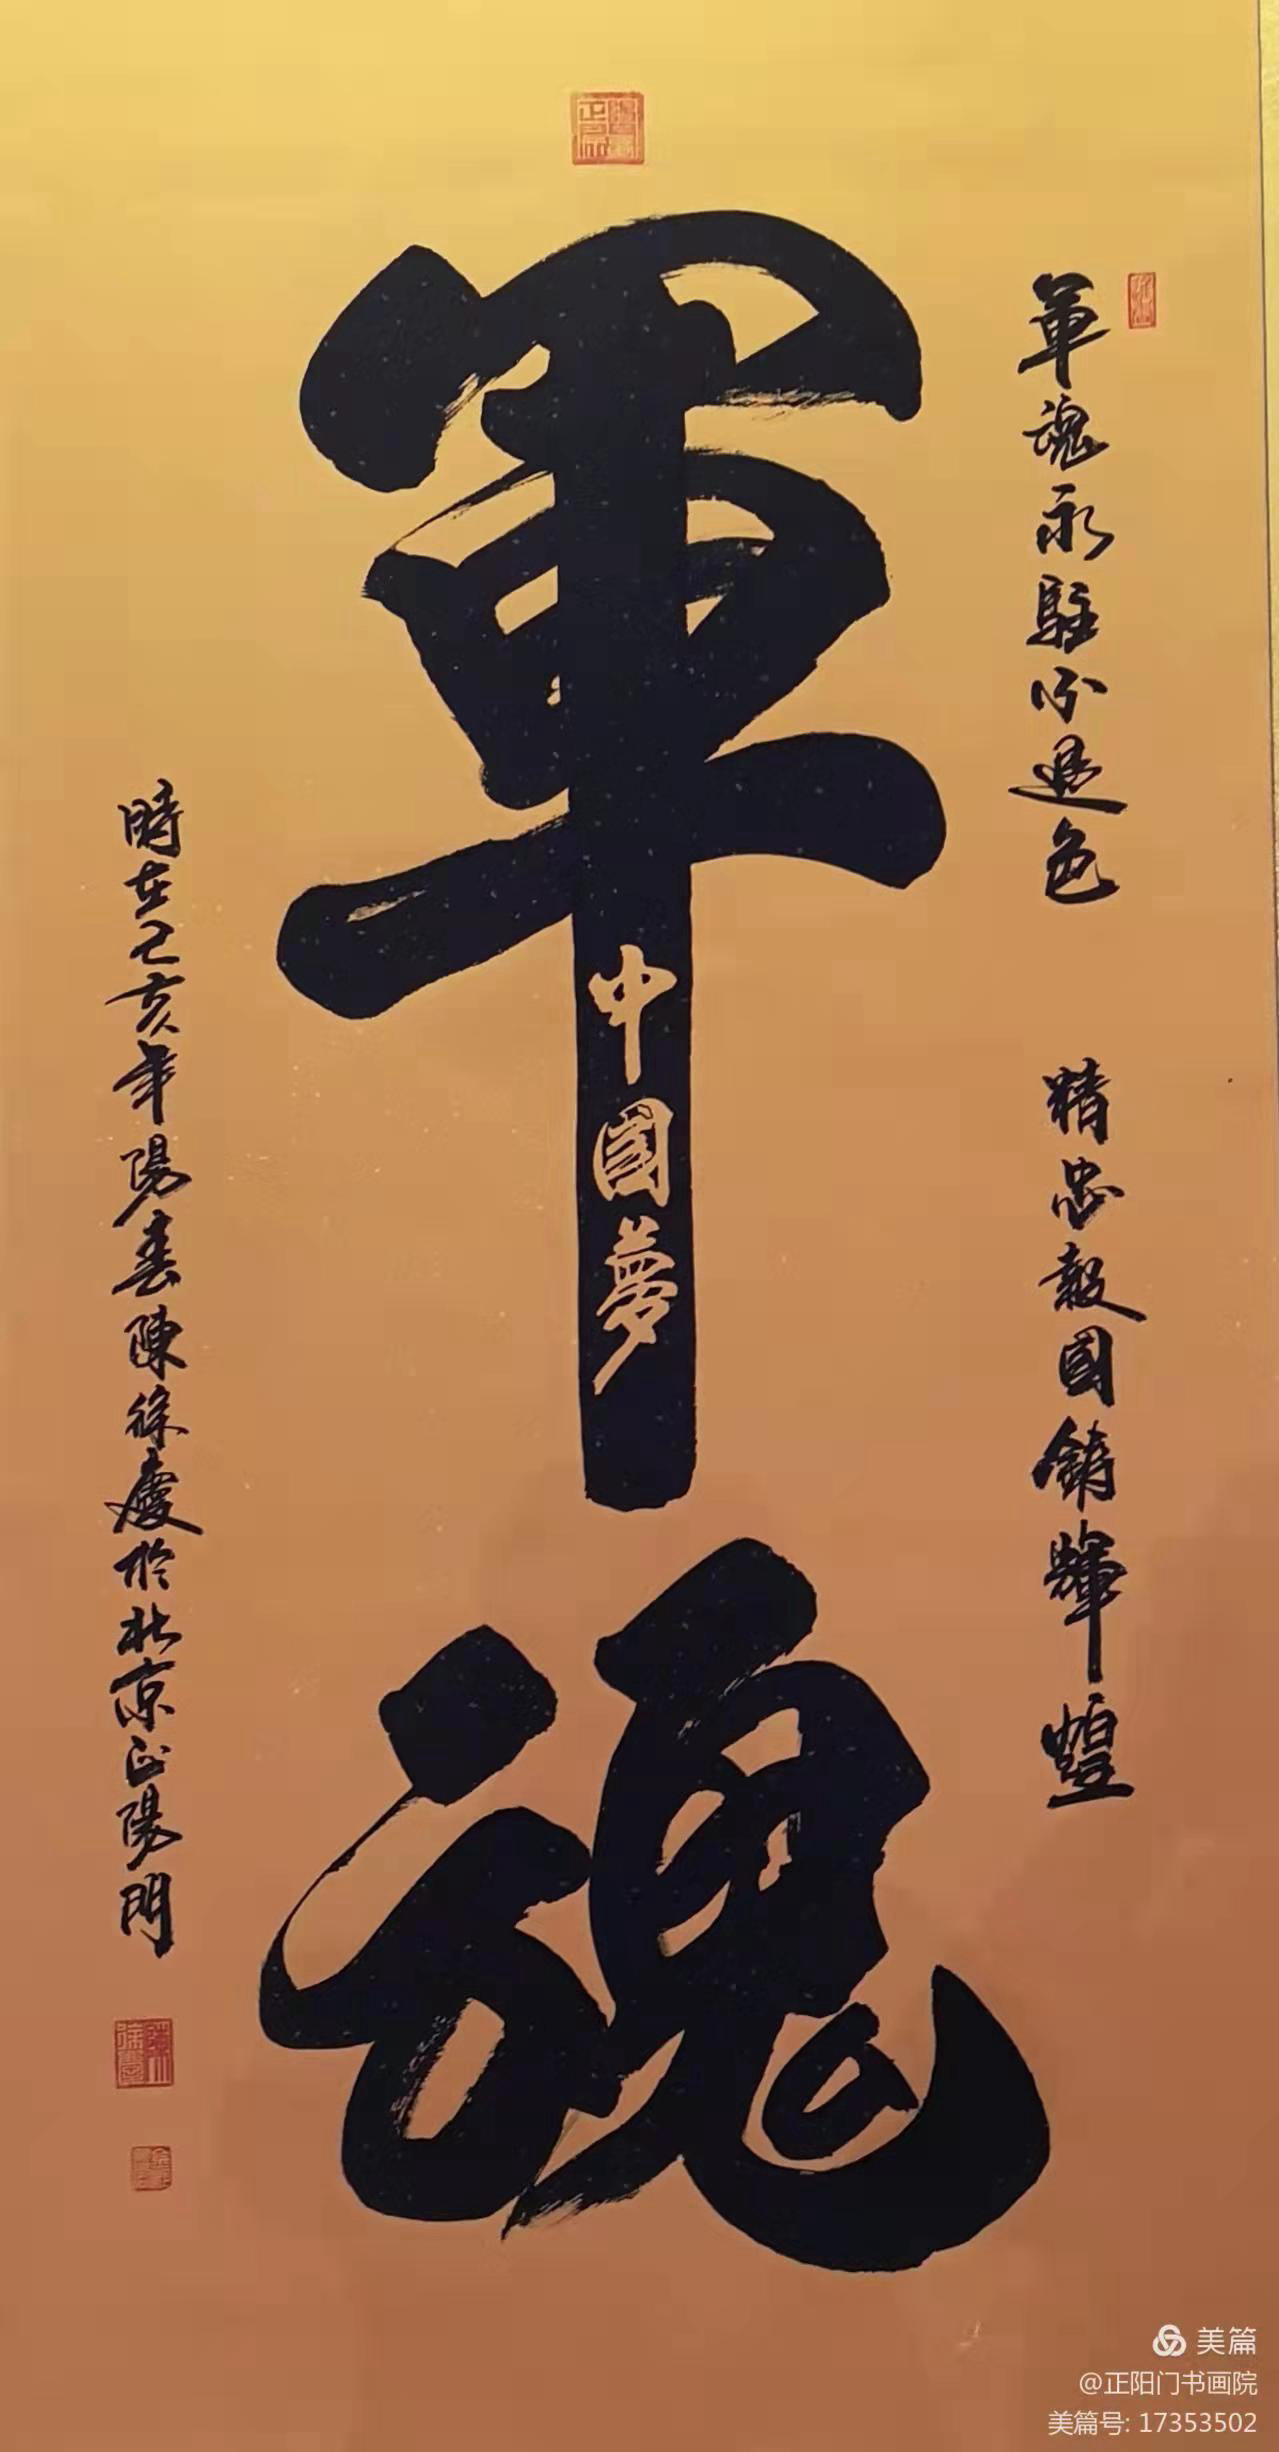 軍魂永駐不退色 精忠報國鑄輝煌
軍魂
中國夢
時在己亥年陽春陳徐慶於北京正陽門
美篇
@正阳门书画院
美篇号: 17353502